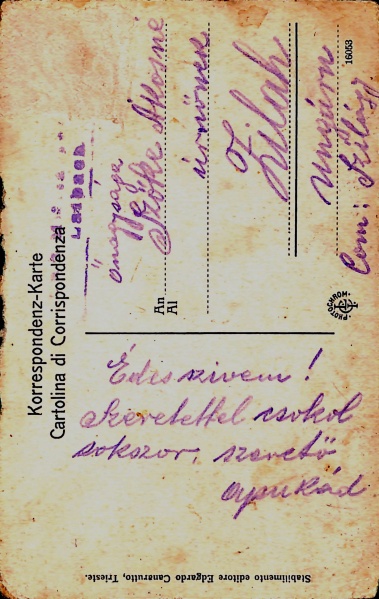 Korrespondenz-Karte
Cartolina di Corrispondenza
Laibach
An
Al
Őnagysága
Szőke Ákosné
úrnőnek
Zilah
Ungarn
Com: Szilágy
16053
PHOTOCHROM
Édes szivem!
Szeretettel csokol
sokszor, szerető
apukád
Stabilimento editore Edgardo Canarutto, Trieste.